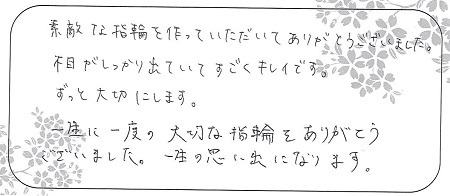 素敵な指輪を作っていただいてありがとうございました。
木目がしっかり出ていてすごくキレイです。
ずっと大切にします。
一生に一度の大切な指輪をありがとう
ございました。一生の思い出になります。